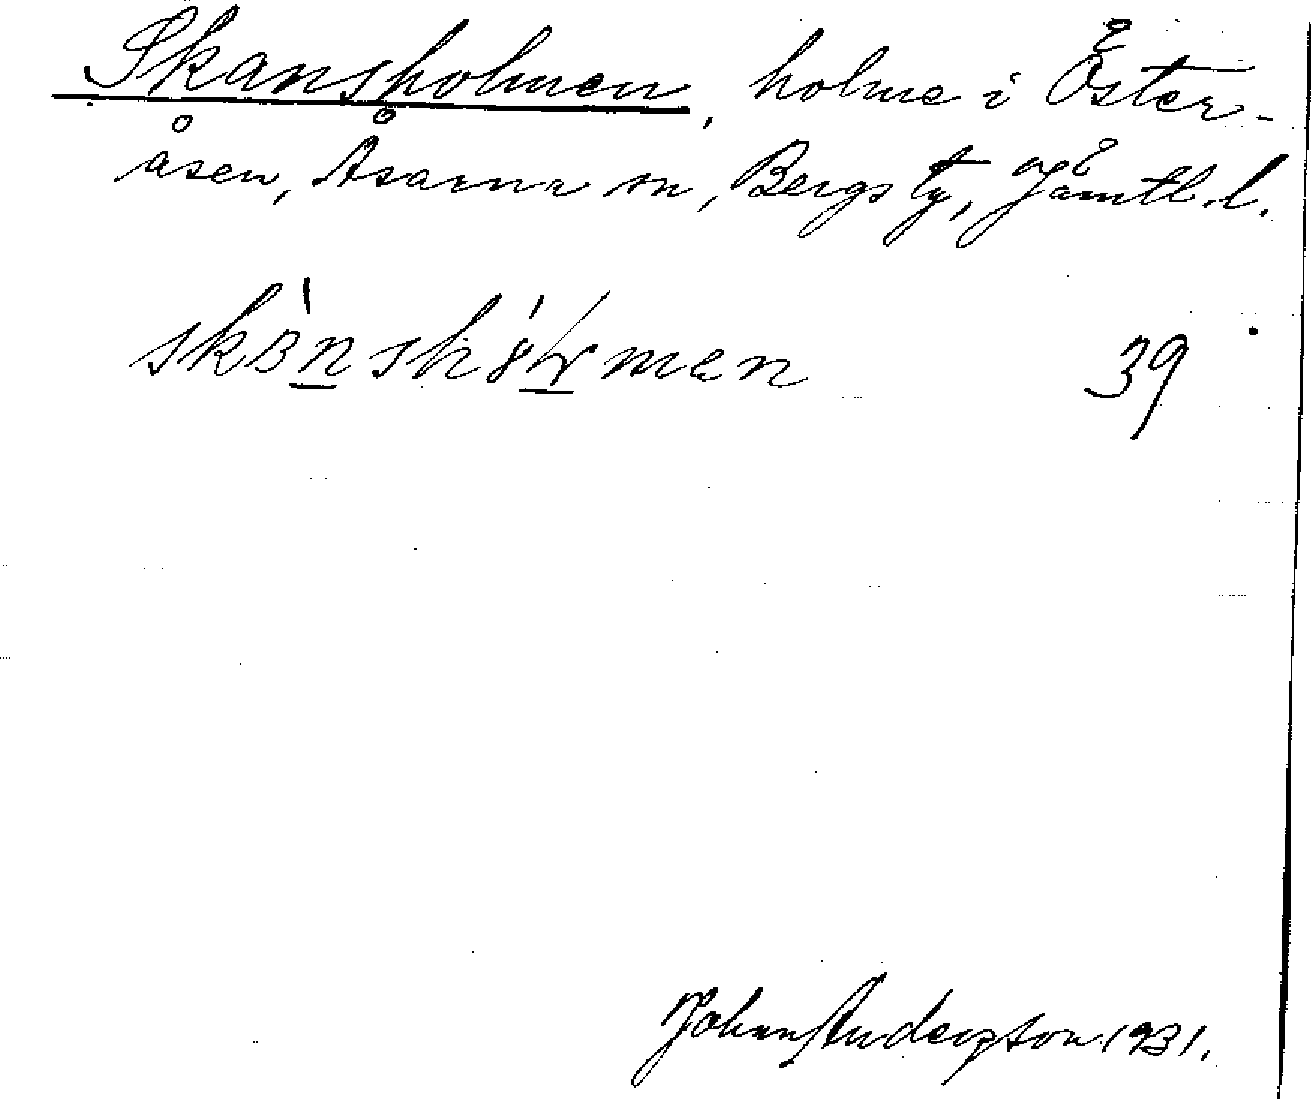 Skansholmen, holme i Öster-
åsen, Åsarne sn, Bergs tg, Jämtl. l.
39
Johan Anderzson 1931.